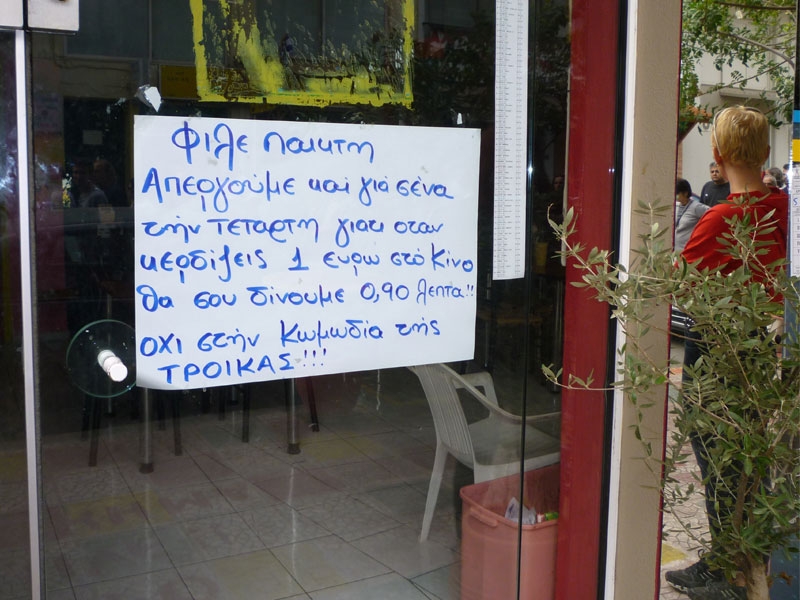 Φιλε Παικτη
Απεργούμε και γιά σένα
τήν ΤΕΤΑΡΤΗ γιατι οταν
κερδίζεις 1 ευρώ στό Κίνο
θα σου δίνουμε 0,90 λεπτά!!
ΟΧΙ στήν Κωμωδία τής
ΤΡΟΙΚΑΣ!!!